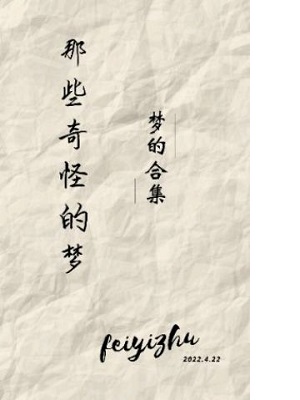 那些奇怪的梦
梦的合集
feiyizhu
2022.4.22